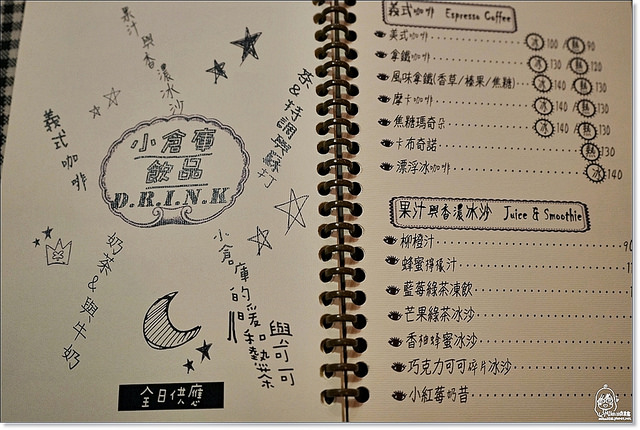 果汁與香濃冰沙
茶&特調與蘇打
義式咖啡
小倉庫
飲品
D.R.I.N.K
奶茶&與牛奶
小倉庫的暖
與可可
全日供應
義式咖啡 Espresso Coffee
美式咖啡 冰 100 / 熱 90
拿鐵咖啡 冰 130 / 熱 120
風味拿鐵(香草/榛果/焦糖) 冰 140 / 熱 130
摩卡咖啡 冰 140 / 熱 130
焦糖瑪奇朵 冰 140 / 熱 130
卡布奇諾 熱 130
漂浮冰咖啡 冰 140
果汁與香濃冰沙 Juice & Smoothie
柳橙汁
蜂蜜檸檬汁
藍莓綠茶凍飲
芒果綠茶冰沙
香柚蜂蜜冰沙
巧克力可可碎片冰沙
小紅莓奶昔